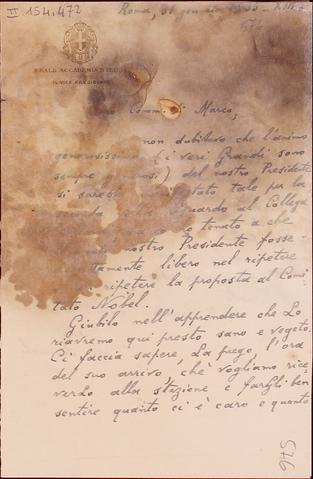 II 154.472
Roma, 31 gennaio
REALE ACCADEMIA D'ITALIA
IL VICE PRESIDENTE
Comm. di Marco,
non dubitavo che l'animo
generosissimo (i veri Grandi sono
sempre) del nostro Presidente
si sarebbe tale per la
riguardo al Collega
tenuto a che
nostro Presidente fosse
libero nel ripetere
ripetere la proposta al Comi
tato Nobel.
Giubilo nell'apprendere che Lo
riavremo qui presto sano e vegeto.
Ci faccia sapere, La prego, l'ora
del suo arrivo, chè vogliamo rice
verlo alla stazione e fargli ben
sentire quanto ci è caro e quanto
546